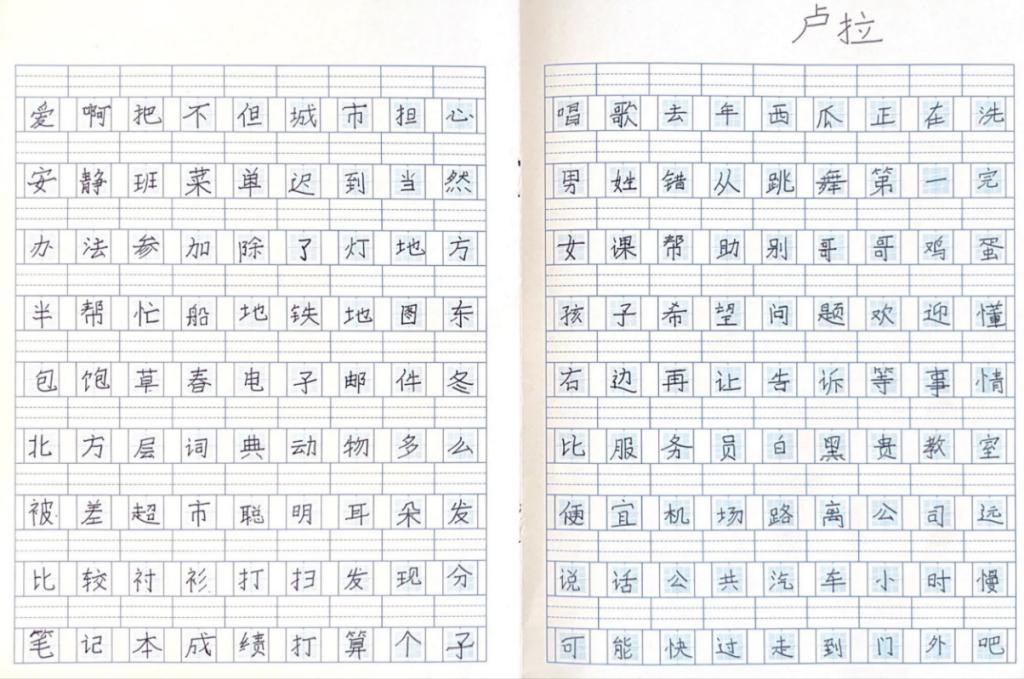 爱啊把不但城市担心
安静班菜单迟到当然
办法参加除了灯地方
半帮忙船地铁地图东
包饱草春电子邮件冬
北方层词典动物多么
被差超市聪明耳朵发
比较衬衫打扫发现分
笔记本成绩打算个子
卢拉
唱歌去年西瓜正在洗
男姓错从跳舞第一完
女课帮助别哥哥鸡蛋
孩子希望问题欢迎懂
右边再让告诉等事情
比服务员白黑贵教室
便宜机场路离公司远
说话公共汽车小时慢
可能快过走到门外吧